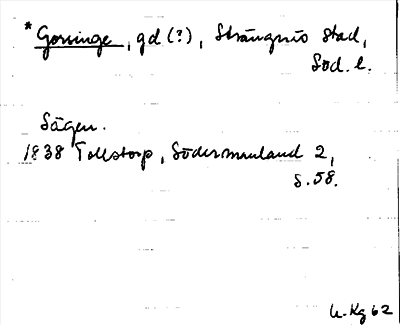 *Gorringe, gd (?), Strängnäs stad,
Söd. l.
Sägen.
1838 Tollstorp, Södermanland 2,
s. 58.
U. Kg 62